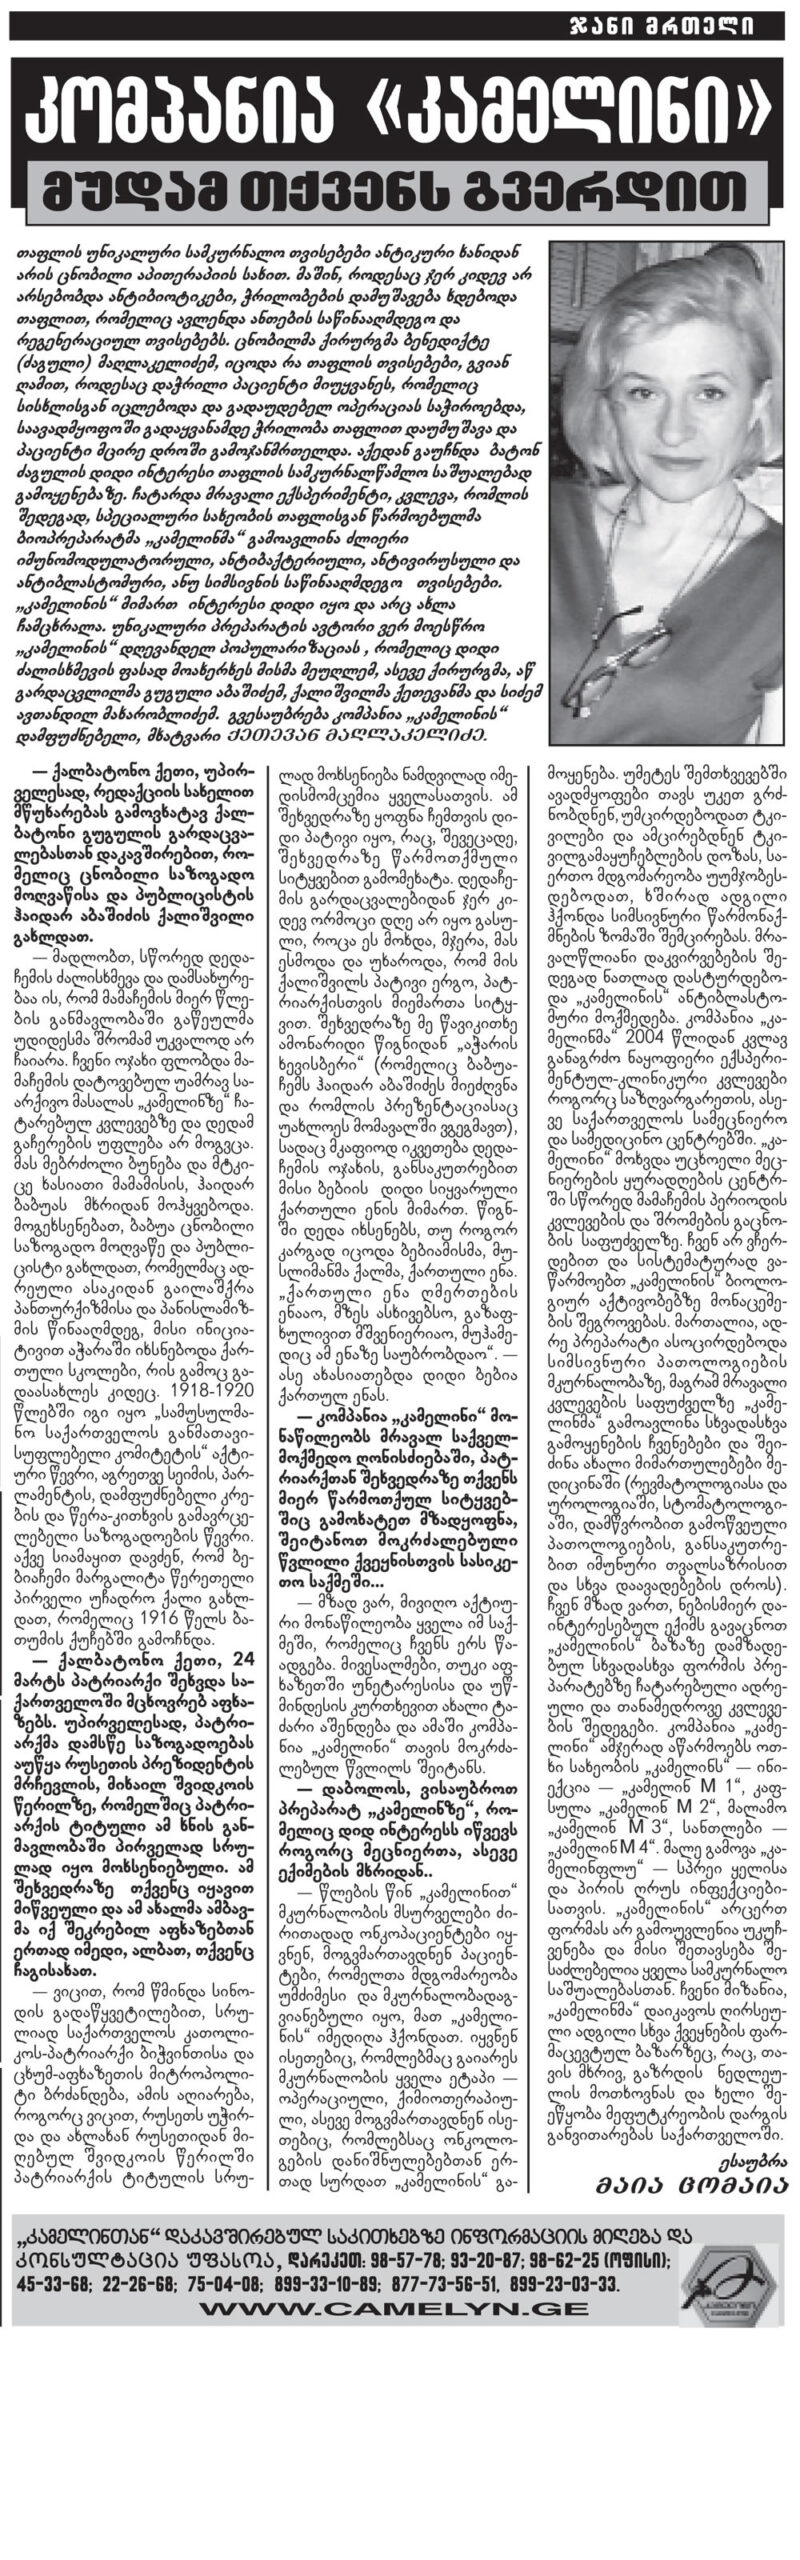 ჯანი მრთელი
კომპანია «კამელინი»
მუდამ თქვენს გვერდით
თაფლის უნიკალური სამკურნალო თვისებები ანტიკური ხანიდან
არის ცნობილი აპითერაპიის სახით. მაშინ, როდესაც ჯერ კიდევ არ
არსებობდა ანტიბიოტიკები, ჭრილობების დამუშავება ხდებოდა
თაფლით, რომელიც ავლენდა ანთების საწინააღმდეგო და
რეგენერაციულ თვისებებს. ცნობილმა ქირურგმა ბენედიქტე
(ძაგული) მაღლაკელიძემ, იცოდა რა თაფლის თვისებები, გვიან
ღამით, როდესაც დაჭრილი პაციენტი მიუყვანეს, რომელიც
სისხლისგან იცლებოდა და გადაუდებელ ოპერაციას საჭიროებდა,
საავადმყოფოში გადაყვანამდე ჭრილობა თაფლით დაუმუშავა და
პაციენტი მცირე დროში გამოჯანმრთელდა. აქედან გაუჩნდა ბატონ
ძაგულის დიდი ინტერესი თაფლის სამკურნალწამლო საშუალებად
გამოყენებაზე. ჩატარდა მრავალი ექსპერიმენტი, კვლევა, რომლის
შედეგად, სპეციალური სახეობის თაფლისგან წარმოებულმა
ბიოპრეპარატმა „კამელინმა“ გამოავლინა ძლიერი
იმუნომოდულატორული, ანტიბაქტერიული, ანტივირუსული და
ანტიბლასტომური, ანუ სიმსივნის საწინააღმდეგო თვისებები.
„კამელინის“ მიმართ ინტერესი დიდი იყო და არც ახლა
ჩამცხრალა. უნიკალური პრეპარატის ავტორი ვერ მოესწრო
„კამელინის“ დღევანდელ პოპულარიზაციას , რომელიც დიდი
ძალისხმევის ფასად მოახერხეს მისმა მეუღლემ, ასევე ქირურგმა, აწ
გარდაცვლილმა გუგული აბაშიძემ, ქალიშვილმა ქეთევანმა და სიძემ
ავთანდილ მახარობლიძემ. გვესაუბრება კომპანია „კამელინის“
დამფუძნებელი, მხატვარი ქეთევან მაღლაკელიძე.
— ქალბატონო ქეთი, უპირ-
ველესად, რედაქციის სახელით
მწუხარებას გამოვხატავ ქალ-
ბატონი გუგულის გარდაცვა-
ლებასთან დაკავშირებით, რო-
მელიც ცნობილი საზოგადო
მოღვაწისა და პუბლიცისტის
ჰაიდარ აბაშიძის ქალიშვილი
გახლდათ.
— მადლობთ, სწორედ დედა-
ჩემის ძალისხმევა და დამსახურე-
ბაა ის, რომ მამაჩემის მიერ წლე-
ბის განმავლობაში გაწეულმა
უდიდესმა შრომამ უკვალოდ არ
ჩაიარა. ჩვენი ოჯახი ფლობდა მა-
მაჩემის დატოვებულ უამრავ სა-
არქივო მასალას „კამელინზე“ ჩა-
ტარებულ კვლევებზე და დედამ
გაჩერების უფლება არ მოგვცა.
მას მებრძოლი ბუნება და მტკი-
ცე ხასიათი მამამისის, ჰაიდარ
ბაბუას მხრიდან მოჰყვებოდა.
მოგეხსენებათ, ბაბუა ცნობილი
საზოგადო მოღვაწე და პუბლი-
ცისტი გახლდათ, რომელმაც ად-
რეული ასაკიდან გაილაშქრა
პანთურქიზმისა და პანისლამიზ-
მის წინააღმდეგ, მისი ინიცია-
ტივით აჭარაში იხსნებოდა ქარ-
თული სკოლები, რის გამოც გა-
დაასახლეს კიდეც. 1918-1920
წლებში იგი იყო „სამუსულმა-
ნო საქართველოს განმათავი-
სუფლებელი კომიტეტის“ აქტი-
ური წევრი, აგრეთვე სეიმის, პარ-
ლამენტის, დამფუძნებელი კრე-
ბის და წერა-კითხვის გამავრცე-
ლებელი საზოგადოების წევრი.
აქვე სიამაყით დავძენ, რომ ბე-
ბიაჩემი მარგალიტა წერეთელი
პირველი უჩადრო ქალი გახლ-
დათ, რომელიც 1916 წელს ბა-
თუმის ქუჩებში გამოჩნდა.
— ქალბატონო ქეთი, 24
მარტს პატრიარქი შეხვდა სა-
ქართველოში მცხოვრებ აფხა-
ზებს. უპირველესად, პატრი-
არქმა დამსწე საზოგადოებას
აუწყა რუსეთის პრეზიდენტის
მრჩევლის, მიხაილ შვიდკოის
წერილზე, რომელშიც პატრი-
არქის ტიტული ამ ხნის გან-
მავლობაში პირველად სრუ-
ლად იყო მოხსენიებული. ამ
შეხვედრაზე თქვენც იყავით
მიწვეული და ამ ახალმა ამბავ-
მა იქ შეკრებილ აფხაზებთან
ერთად იმედი, ალბათ, თქვენც
ჩაგისახათ.
— ვიცით, რომ წმინდა სინო-
დის გადაწყვეტილებით, სრუ-
ლიად საქართველოს კათოლი-
კოს-პატრიარქი ბიჭვინთისა და
ცხუმ-აფხაზეთის მიტროპოლი-
ტი ბრძანდება, ამის აღიარება,
როგორც ვიცით, რუსეთს უჭირ-
და და ახლახან რუსეთიდან მი-
ღებულ შვიდკოის წერილში
პატრიარქის ტიტულის სრუ-
ლად მოხსენიება ნამდვილად იმე-
დისმომცემია ყველასათვის. ამ
შეხვედრაზე ყოფნა ჩემთვის დი-
დი პატივი იყო, რაც, შევეცადე,
შეხვედრაზე წარმოთქმული
სიტყვებით გამომეხატა. დედაჩე-
მის გარდაცვალებიდან ჯერ კი-
დევ ორმოცი დღე არ იყო გასუ-
ლი, როცა ეს მოხდა, მჯერა, მას
ესმოდა და უხაროდა, რომ მის
ქალიშვილს პატივი ერგო, პატ-
რიარქისთვის მიემართა სიტყ-
ვით. შეხვედრაზე მე წავიკითხე
ამონარიდი წიგნიდან „აჭარის
ხევისბერი“ (რომელიც ბაბუა-
ჩემს ჰაიდარ აბაშიძეს მიეძღვნა
და რომლის პრეზენტაციასაც
უახლოეს მომავალში ვგეგმავთ),
სადაც მკაფიოდ იკვეთება დედა-
ჩემის ოჯახის, განსაკუთრებით
მისი ბებიის დიდი სიყვარული
ქართული ენის მიმართ. წიგნ-
ში დედა იხსენებს, თუ როგორ
კარგად იცოდა ბებიამისმა, მუს-
ლიმანმა ქალმა, ქართული ენა.
„ქართული ენა ღმერთების
ენააო, მზეს ასხივებსო, გაზაფ-
ხულივით მშვენიერიაო, მუჰამე-
დიც ამ ენაზე საუბრობდაო“. —
ასე ახასიათებდა დიდი ბებია
ქართულ ენას.
— კომპანია „კამელინი“ მო-
ნაწილეობს მრავალ საქველ-
მოქმედო ღონისძიებაში, პატ-
რიარქთან შეხვედრაზე თქვენს
მიერ წარმოთქულ სიტყვებ-
შიც გამოხატეთ მზადყოფნა,
შეიტანოთ მოკრძალებული
წვლილი ქვეყნისთვის სასიკე-
თო საქმეში...
— მზად ვარ, მივიღო აქტიუ-
რი მონაწილეობა ყველა იმ საქ-
მეში, რომელიც ჩვენს ერს წა-
ადგება. მივესალმები, თუკი აფ-
ხაზეთში უნეტარესისა და უწ-
მინდესის კურთხევით ახალი ტა-
ძარი აშენდება და ამაში კომპა-
ნია „კამელინი“ თავის მოკრძა-
ლებულ წვლილს შეიტანს.
— დაბოლოს, ვისაუბროთ
პრეპარატ „კამელინზე“, რო-
მელიც დიდ ინტერესს იწვევს
როგორც მეცნიერთა, ასევე
ექიმების მხრიდან..
— წლების წინ „კამელინით“
მკურნალობის მსურველები ძი-
რითადად ონკოპაციენტები იყ-
ვნენ, მოგვმართავდნენ პაციენ-
ტები, რომელთა მდგომარეობა
უმძიმესი და მკურნალობადაგ-
ვიანებული იყო, მათ „კამელი-
ნის“ იმედიღა ჰქონდათ. იყვნენ
ისეთებიც, რომლებმაც გაიარეს
მკურნალობის ყველა ეტაპი —
ოპერაციული, ქიმიოთერაპიუ-
ლი, ასევე მოგვმართავდნენ ისე-
თებიც, რომლებსაც ონკოლო-
გების დანიშნულებებთან ერ-
თად სურდათ „კამელინის“ გა-
მოყენება. უმეტეს შემთხვევებში
ავადმყოფები თავს უკეთ გრძ-
ნობდნენ, უმცირდებოდათ ტკი-
ვილები და ამცირებდნენ ტკი-
ვილგამაყუჩებლების დოზას, სა-
ერთო მდგომარეობა უუმჯობეს-
დებოდათ, ხშირად ადგილი
ჰქონდა სიმსივნური წარმონაქ-
მნების ზომაში შემცირებას. მრა-
ვალწლიანი დაკვირვებების შე-
დეგად ნათლად დასტურდებო-
და „კამელინის“ ანტიბლასტო-
მური მოქმედება. კომპანია „კა-
მელინმა“ 2004 წლიდან კვლავ
განაგრძო ნაყოფიერი ექსპერი-
მენტულ-კლინიკური კვლევები
როგორც საზღვარგარეთის, ასე-
ვე საქართველოს სამეცნიერო
და სამედიცინო ცენტრებში. „კა-
მელინი“ მოხვდა უცხოელი მეც-
ნიერების ყურადღების ცენტრ-
ში სწორედ მამაჩემის პერიოდის
კვლევების და შრომების გაცნო-
ბის საფუძველზე. ჩვენ არ ვჩერ-
დებით და სისტემატურად ვა-
წარმოებთ „კამელინის“ ბიოლო-
გიურ აქტივობებზე მონაცემე-
ბის შეგროვებას. მართალია, ად-
რე პრეპარატი ასოცირდებოდა
სიმსივნური პათოლოგიების
მკურნალობაზე, მაგრამ მრავალი
კვლევების საფუძველზე „კამე-
ლინმა“ გამოავლინა სხვადასხვა
გამოყენების ჩვენებები და შეი-
ძინა ახალი მიმართულებები მე-
დიცინაში (რევმატოლოგიასა და
უროლოგიაში, სტომატოლოგი-
აში, დამწვრობით გამოწვეული
პათოლოგიების, განსაკუთრე-
ბით იმუნური თვალსაზრისით
და სხვა დაავადებების დროს).
ჩვენ მზად ვართ, ნებისმიერ და-
ინტერესებულ ექიმს გავაცნოთ
„კამელინის“ ბაზაზე დამზადე-
ბულ სხვადასხვა ფორმის პრე-
პარატებზე ჩატარებული ადრე-
ული და თანამედროვე კვლევე-
ბის შედეგები. კომპანია „კამე-
ლინი“ ამჯერად აწარმოებს ოთ-
ხი სახეობის „კამელინს“ — ინი-
ექცია — „კამელინ M 1“, კაფ-
სულა „კამელინ M 2“, მალამო
„კამელინ M 3“, სანთლები —
„კამელინ M 4“. მალე გამოვა „კა-
მელინფლუ“ — სპრეი ყელისა
და პირის ღრუს ინფექციები-
სათვის. „კამელინის“ არცერთ
ფორმას არ გამოუვლენია უკუჩ-
ვენება და მისი შეთავსება შე-
საძლებელია ყველა სამკურნალო
საშუალებასთან. ჩვენი მიზანია,
„კამელინმა“ დაიკავოს ღირსეუ-
ლი ადგილი სხვა ქვეყნების ფარ-
მაცევტულ ბაზარზეც, რაც, თა-
ვის მხრივ, გაზრდის ნედლეუ-
ლის მოთხოვნას და ხელი შე-
ეწყობა მეფუტკრეობის დარგის
განვითარებას საქართველოში.
ესაუბრა
მაია ცომაია
„კამელინთან“ დაკავშირებულ საკითხებზე ინფორმაციის მიღება და
კონსულტაცია უფასოა, დარეკეთ: 98-57-78; 93-20-87; 98-62-25 (ოფისი);
45-33-68; 22-26-68; 75-04-08; 899-33-10-89; 877-73-56-51, 899-23-03-33.
WWW.CAMELYN.GE